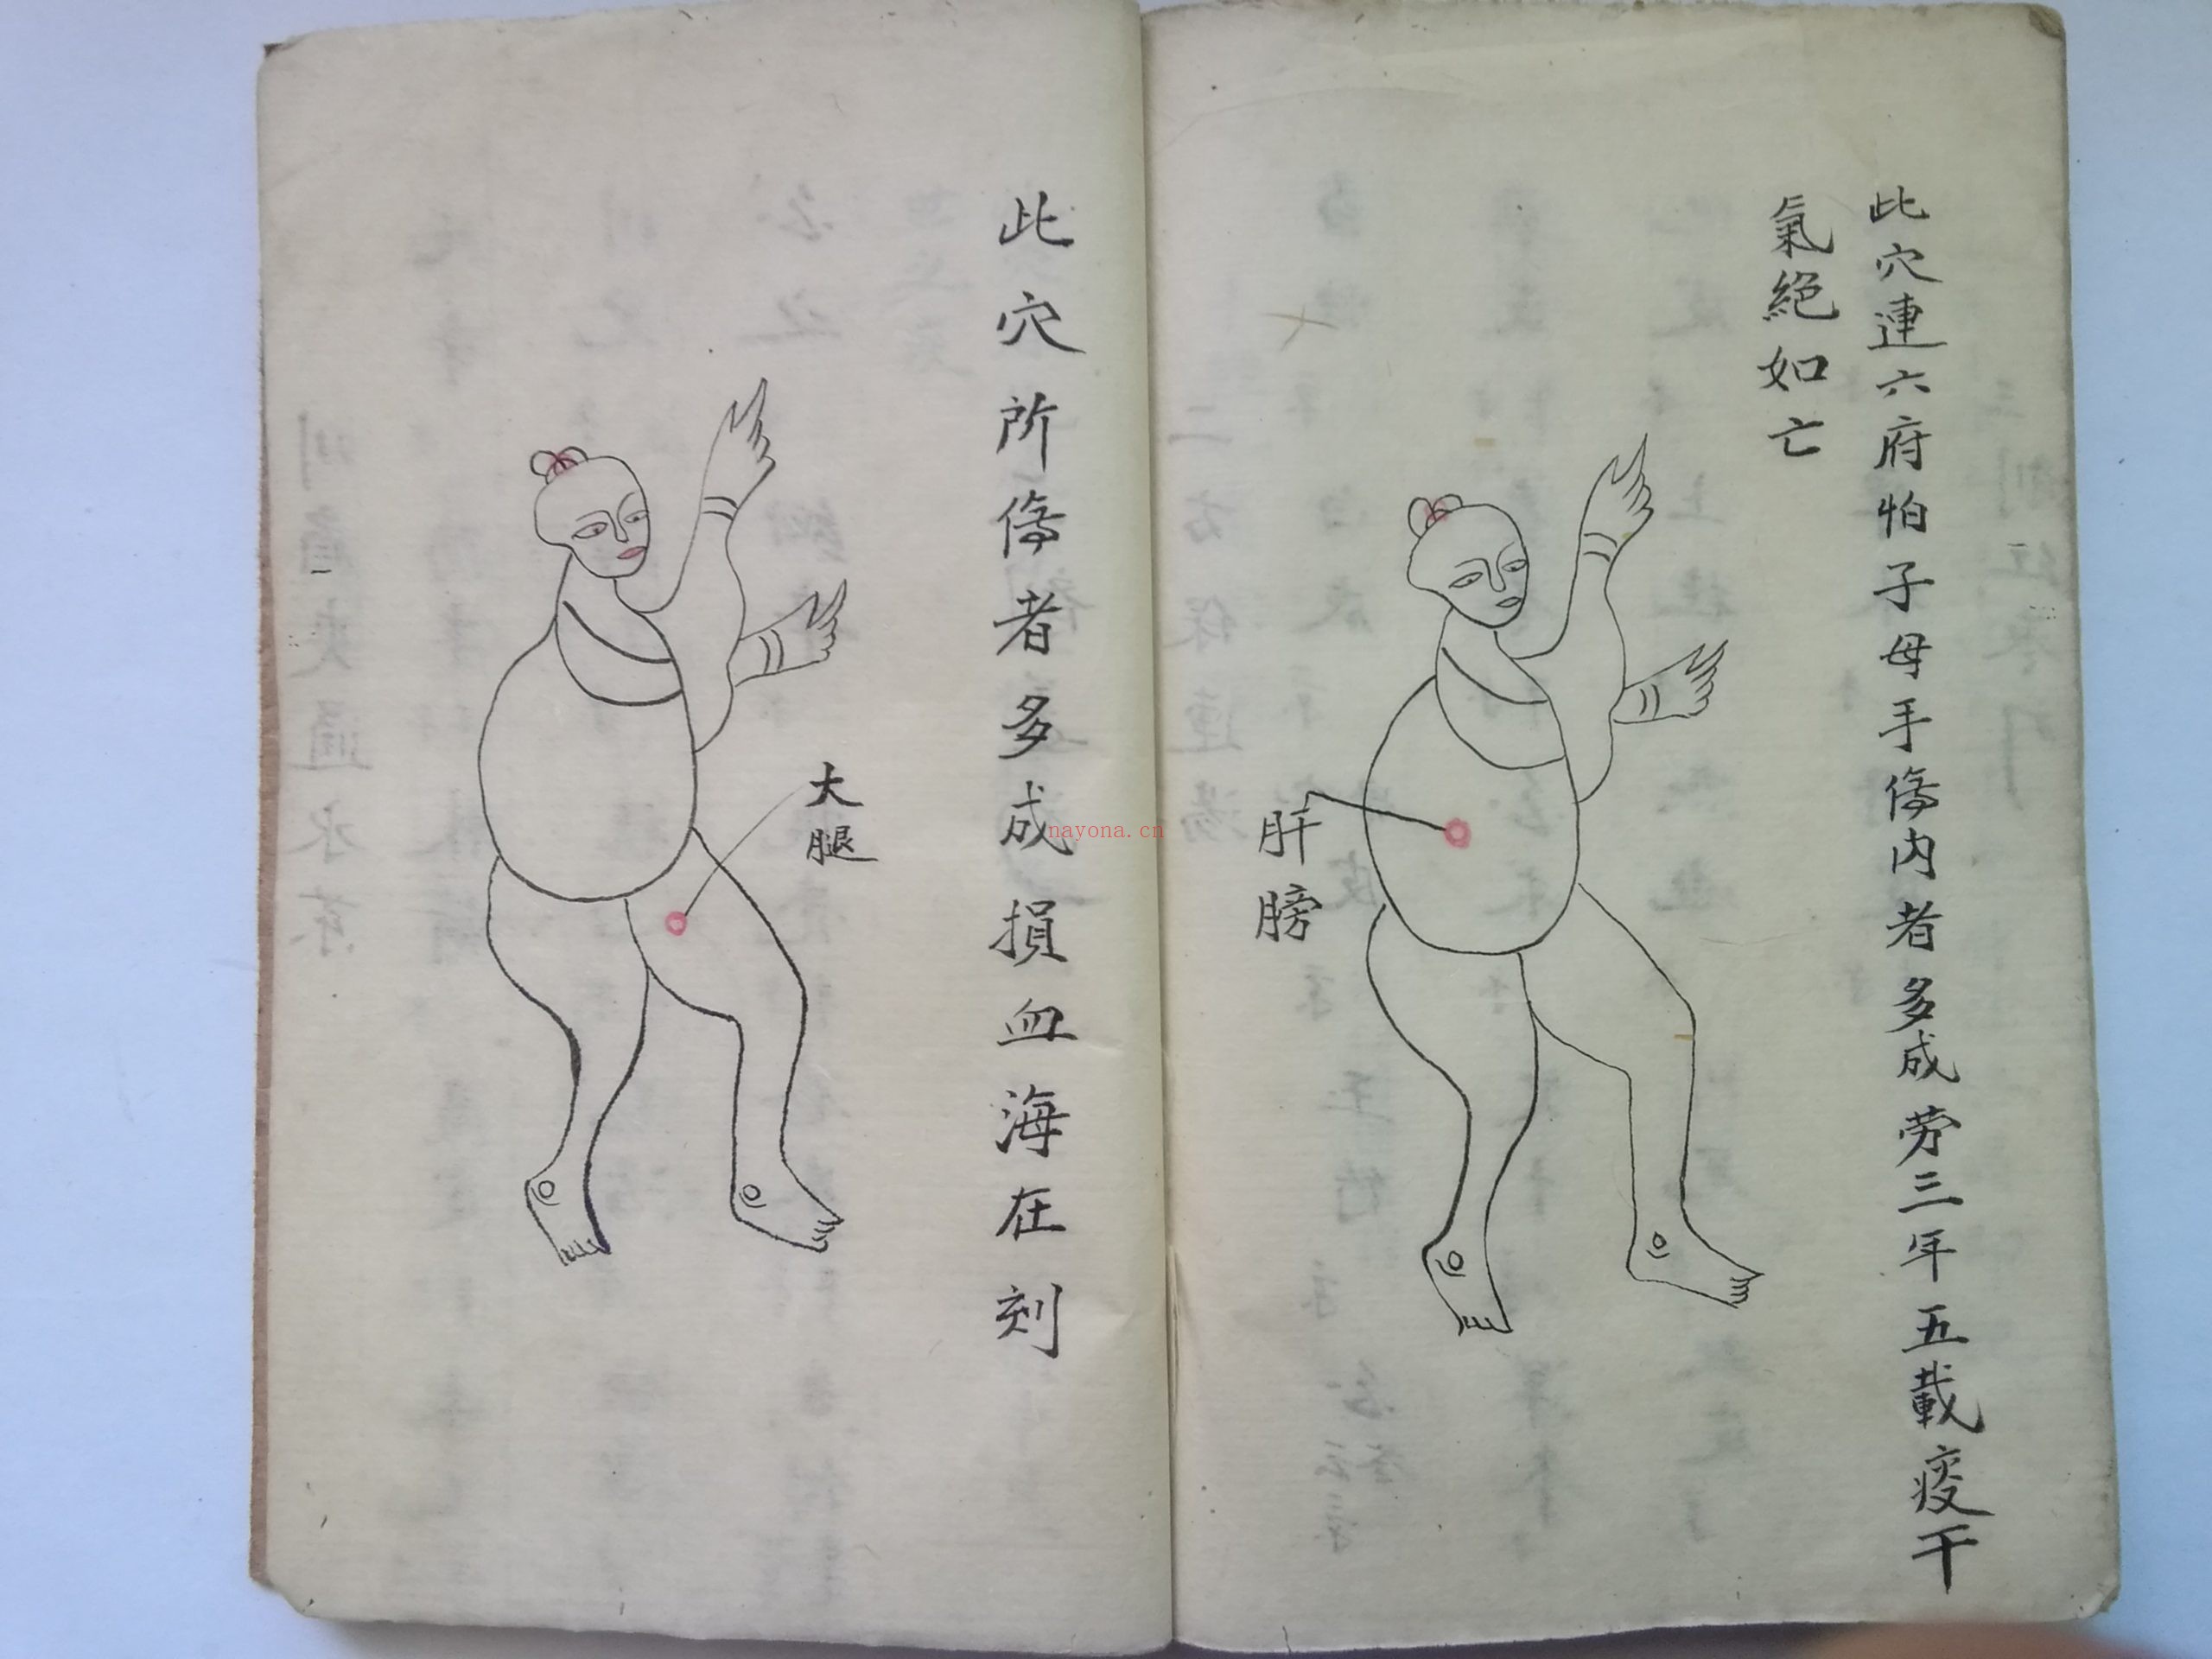 此穴連六府怕子母手傷内者多成劳三年五載痰干
氣絕如亡
肝膀
此穴所傷者多成損血海在刻
大腿
nayona.cn